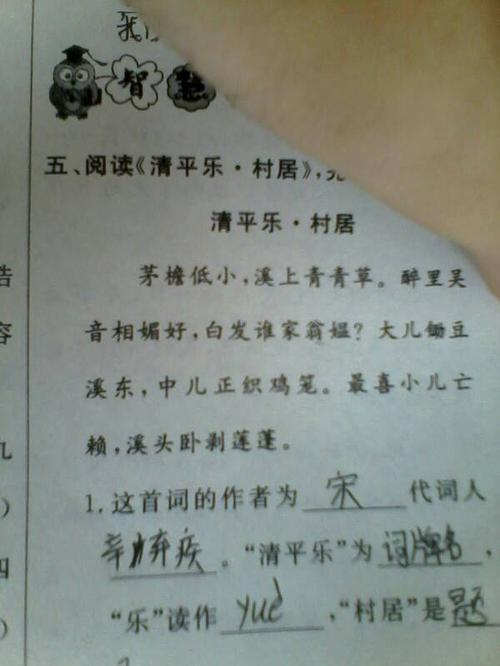 智慧
五、阅读《清平乐·村居》,
清平乐·村居
茅檐低小,溪上青青草。醉里吴
音相媚好,白发谁家翁媪?大儿锄豆
溪东,中儿正织鸡笼。最喜小儿亡
赖,溪头卧剥莲蓬。
1.这首词的作者为 宋 代词人
辛弃疾 。“清平乐”为 词牌名 ,
“乐”读作 yuè ,“村居”是 题
浩
容
九
)
四
)